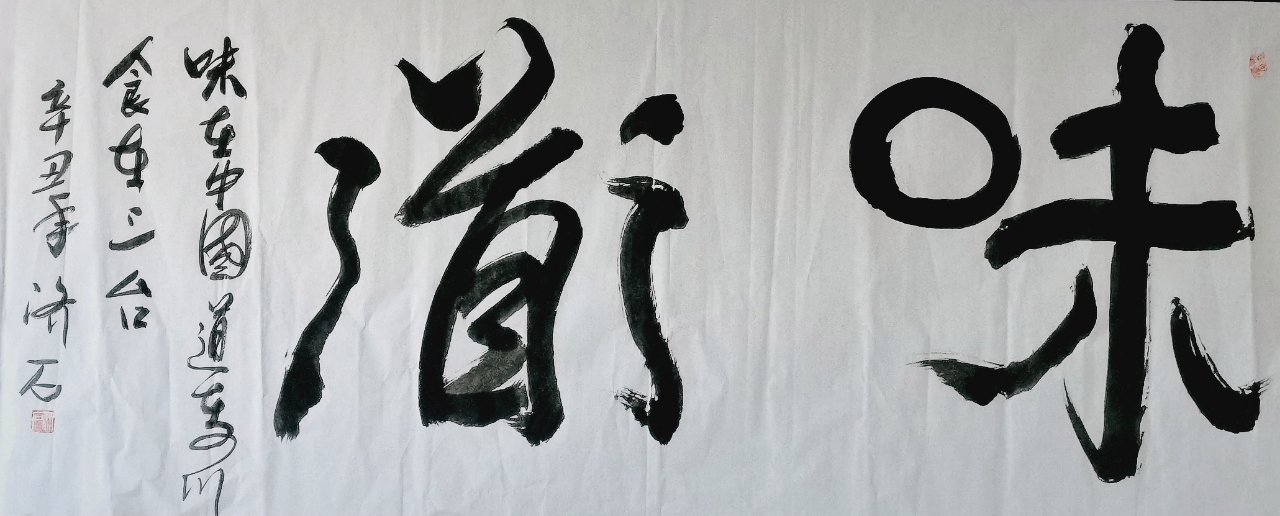 味道
味在中國道在四川
食在三台
辛丑年 济石